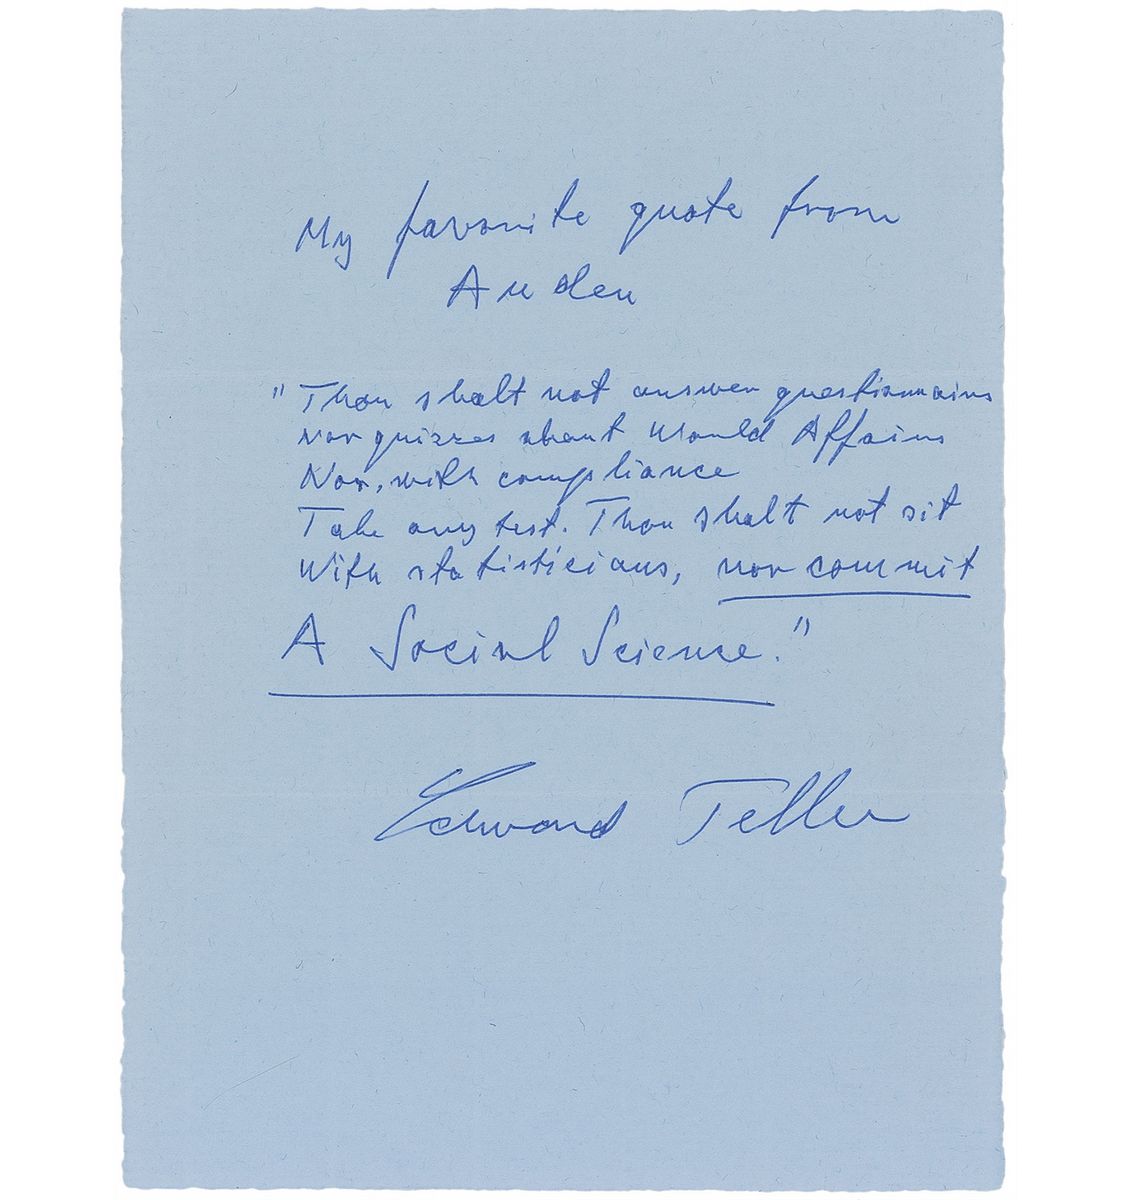 My favorite quote from
Auden
"Thou shalt not answer questionnairs
nor quizzes about World Affairs
Nor, with compliance
Take any test. Thou shalt not sit
With statisticians, nor commit
A Social Science."
Edward Teller